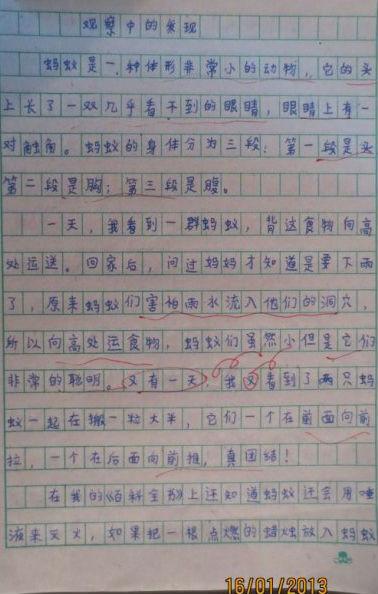 观察中的发现
蚂蚁是一种体形非常小的动物，它的头
上长了一双几乎看不到的眼睛，眼睛上有一
对触角。蚂蚁的身体分为三段：第一段是头
第二段是胸；第三段是腹。
一天，我看到一群蚂蚁，背这食物向高
处运送。回家后，问过妈妈才知道是要下雨
了，原来蚂蚁们害怕雨水流入他们的洞穴，
所以向高处运食物，蚂蚁们虽然小但是它们
非常的聪明。又有一天，我又看到了两只蚂
蚁一起在搬一粒大米，它们一个在前面向前
拉，一个在后面向前推，真团结！
在我的《百科全书》上还知道蚂蚁还会用唾
液来灭火，如果把一根点燃的蜡烛放入蚂蚁
16/01/2013